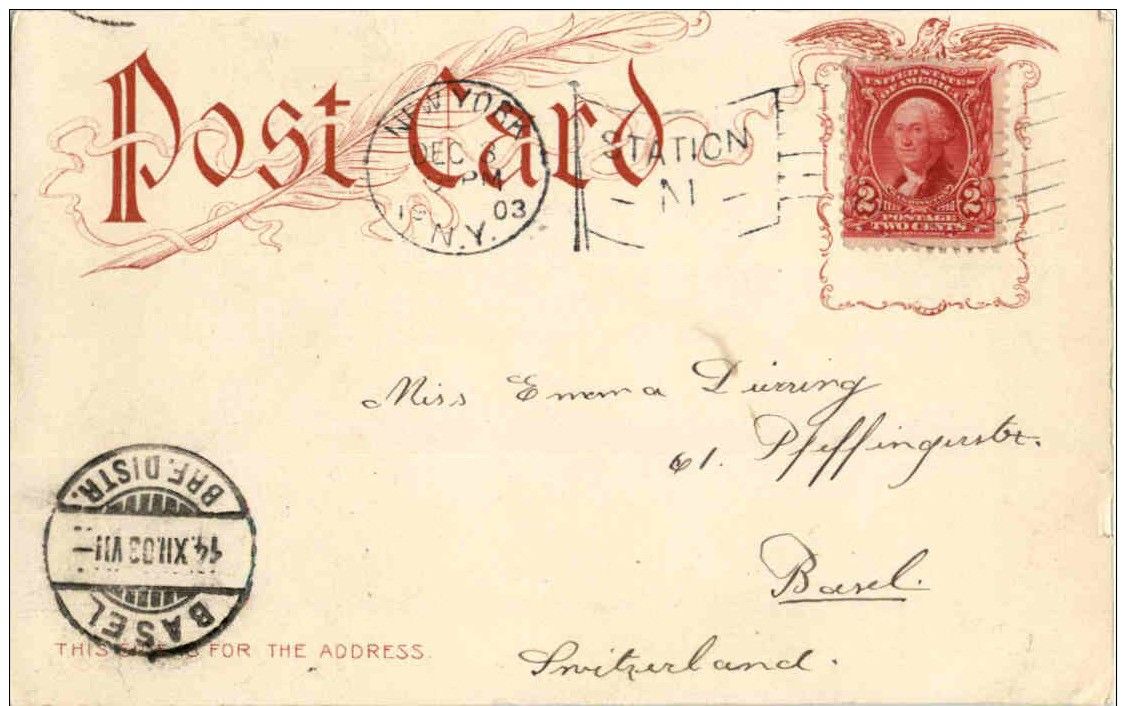 Post Card
NEW YORK
DEC 8
PM
03
N.Y.
STATION
UNITED STATES
OF AMERICA
2 2
POSTAGE
TWO CENTS
Miss Emma Dürring
61. Pfeffingerstr.
Basel.
Switzerland.
BRF. DISTR.
14.XII.03 VII
BASEL
THIS SIDE IS FOR THE ADDRESS.